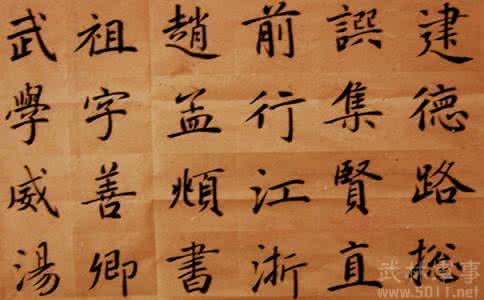 建德路
譔集賢直
前行江浙
趙孟頫書
祖字善卿
武學威湯
www.5011.net